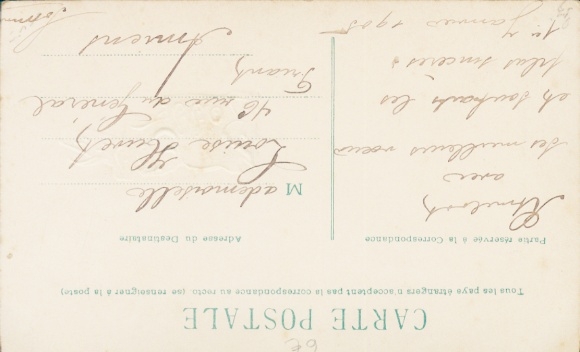 CARTE POSTALE
Tous les pays étrangers n'acceptent pas la correspondance au recto. (se renseigner à la poste)
Partie réservée à la Correspondance
avec
ses meilleurs vœux
et souhaits les
plus sincères
1er Janvier 1905
Adresse du Destinataire
Mademoiselle
Louise
46 rue du Général
Amiens
6€